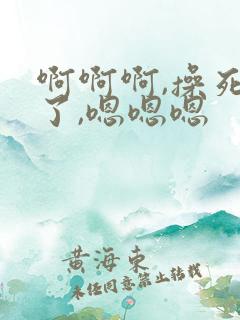 啊啊啊,操死
了,嗯嗯嗯
黄海东
未经同意禁止转载